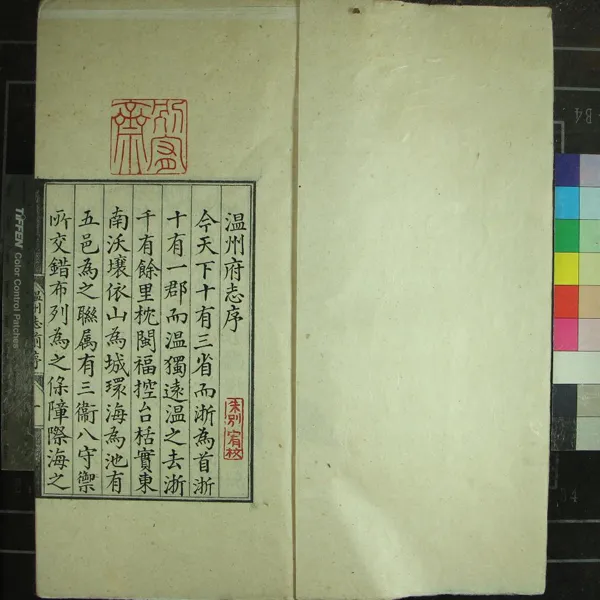 温州府志序
今天下十有三省而浙為首浙
十有一郡而温獨遠温之去浙
千有餘里枕閩福控台栝實東
南沃壤依山為城環海為池有
五邑為之聯属有三衛八守禦
所交錯布列為之保障際海之
TIFFEN Color Control Patches